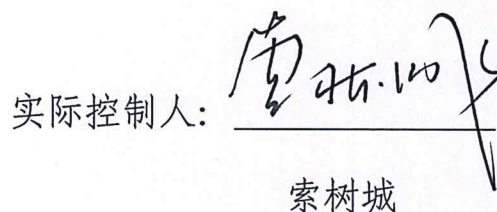 实际控制人：
索树城